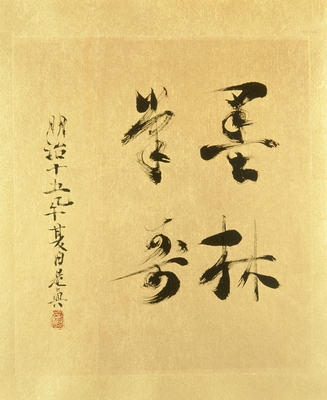 墨林
筆哥
明治十五年夏日是真